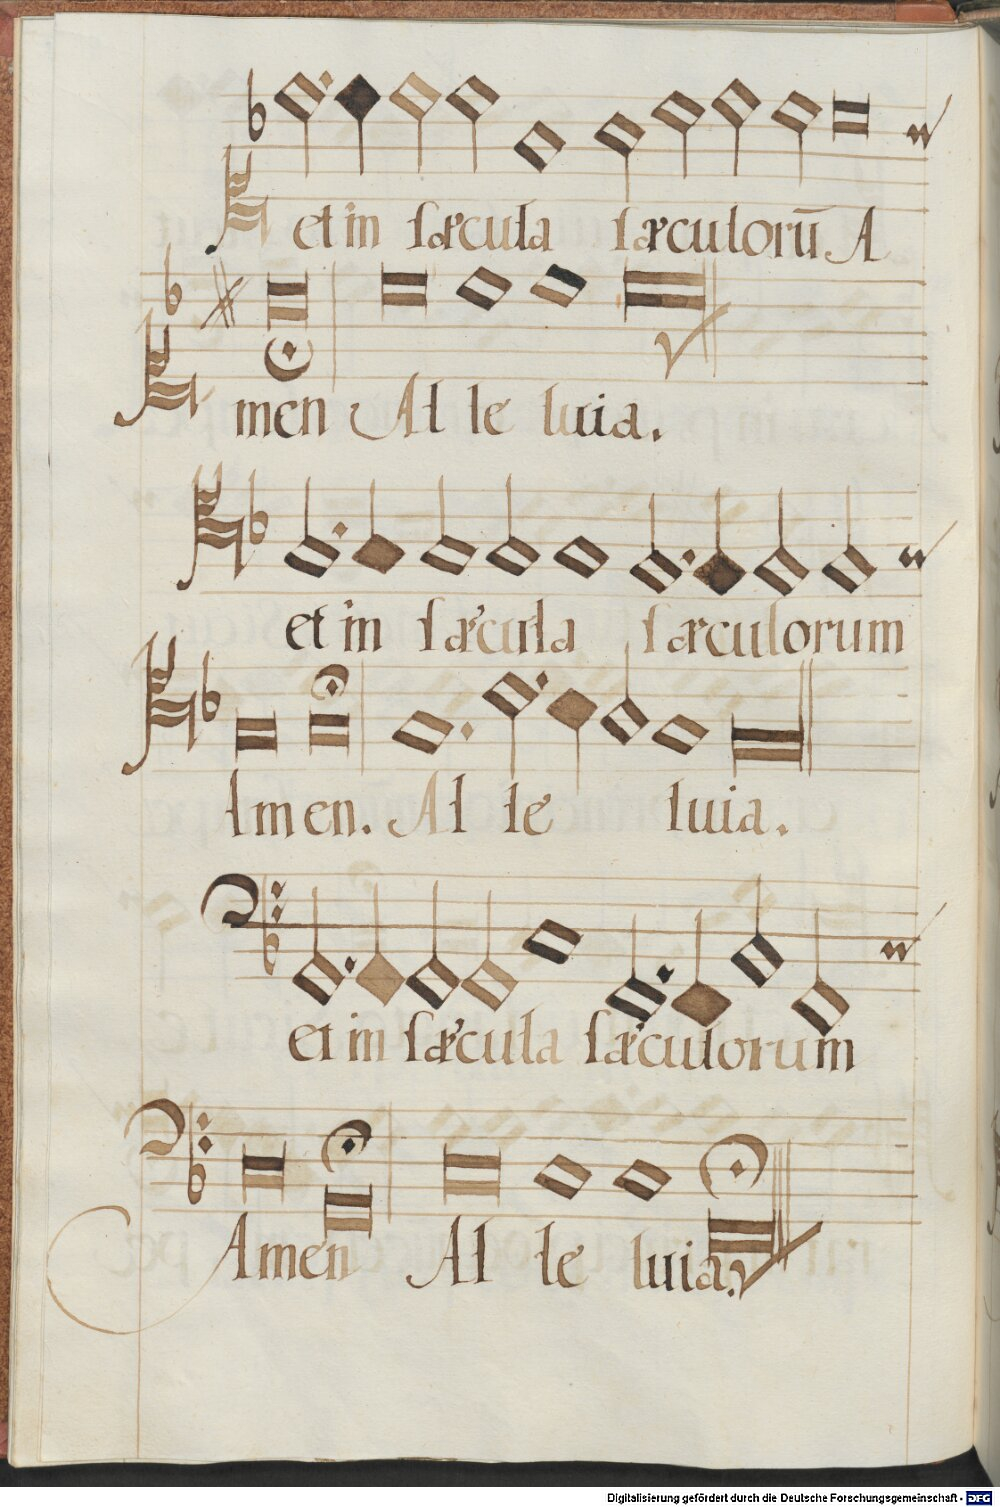 et in sæcula sæculorū A
men Al le luia.
et in sæcula sæculorum
Amen. Al le luia.
et in sæcula sæculorum
Amen Al le luia.
Digitalisierung gefördert durch die Deutsche Forschungsgemeinschaft - DFG